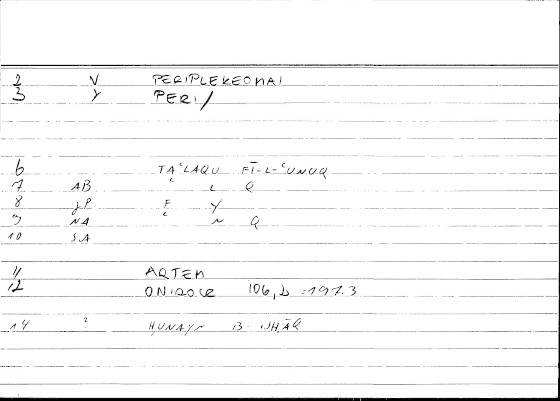 2 V PERIPLEKEOMAI
3 Y PERI/
6 TAʿLAQU FĪ-L-ʿUNUQ
7 AB ʿ L Q
8 JP F Y
9 NA ʿ N Q
10 SA
11 ARTEM
12 ONIROCR 106,2 :197.3
14 ? ḤUNAYN B. ISḤĀQ